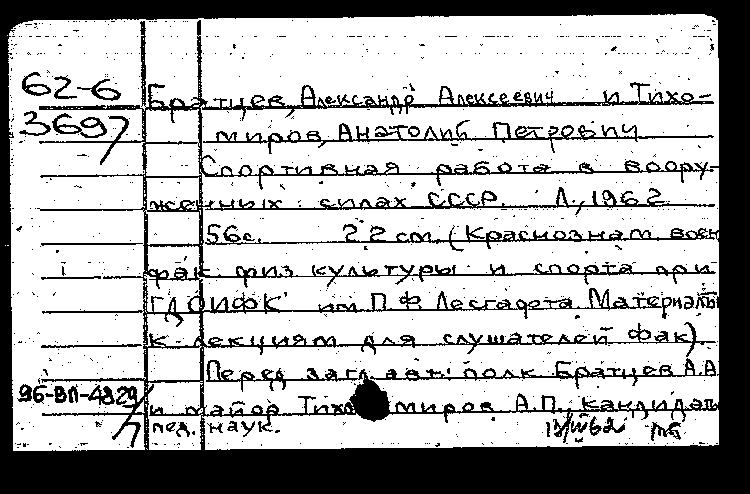 62-6
3697
Братцев, Александр Алексеевич и Тихо-
миров, Анатолий Петрович
Спортивная работа в воору-
женных силах СССР. Л., 1962
56с. 22 см. (Краснознам. воен
фак физ культуры и спорта при
ГДОИФК им П Ф Лесгафта Материалы
к лекциям для слушателей Фак)
Перед загл. авт.: полк Братцев А.А
и майор Тихомиров А.П., кандидаты
96-ВП-4829
пед. наук.